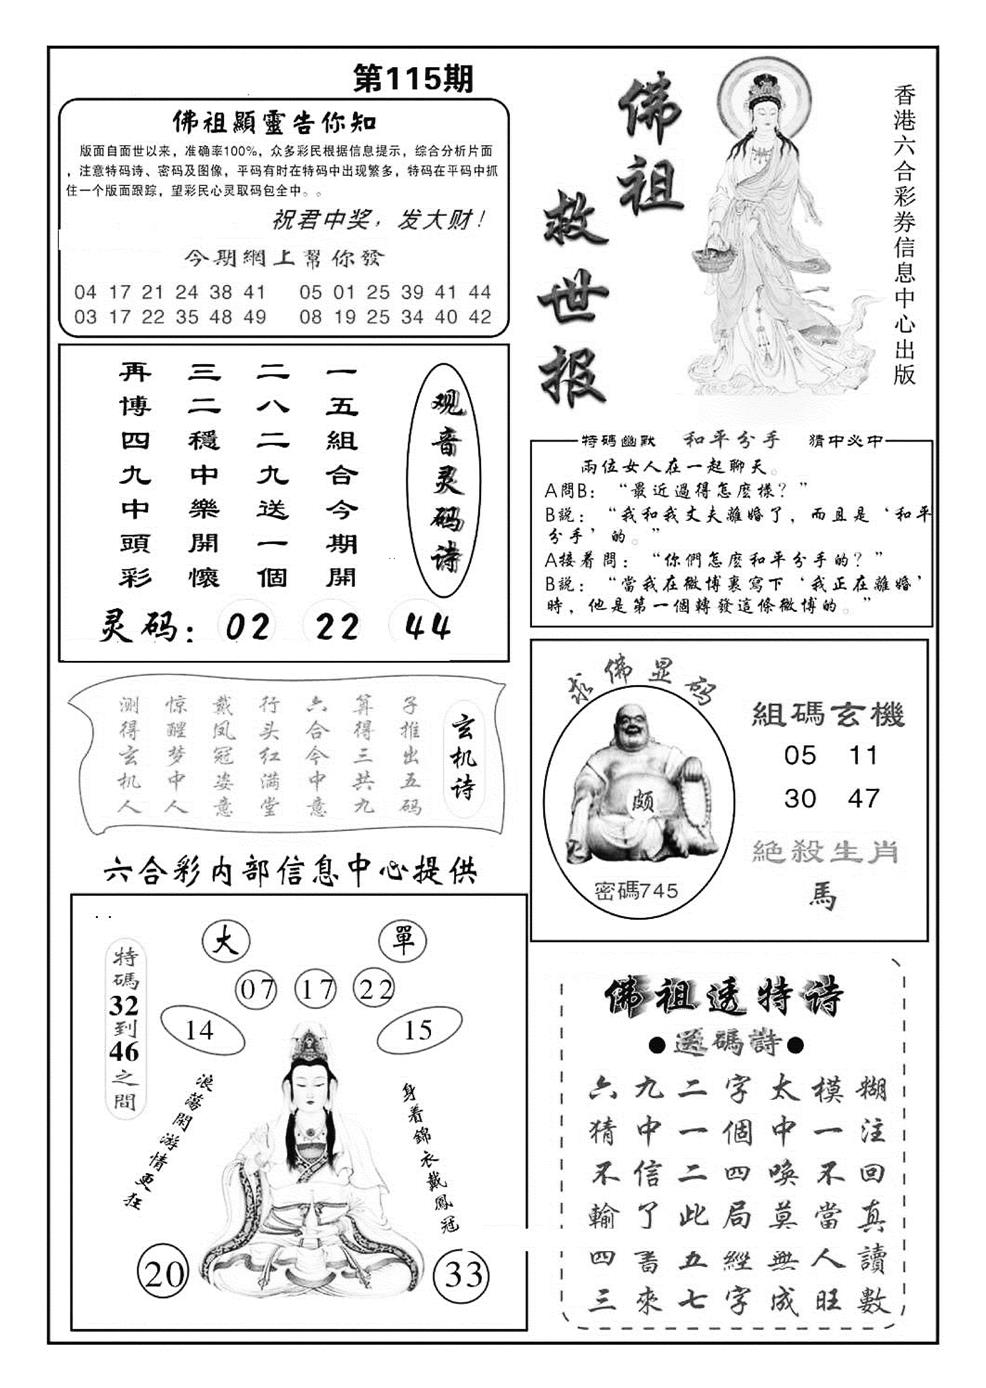 第115期
佛祖顯靈告你知
版面自面世以来，准确率100%，众多彩民根据信息提示，综合分析片面
，注意特码诗、密码及图像，平码有时在特码中出现繁多，特码在平码中抓
住一个版面跟踪，望彩民心灵取码包全中。。
祝君中奖，发大财！
今期網上幫你發
04 17 21 24 38 41 05 01 25 39 41 44
03 17 22 35 48 49 08 19 25 34 40 42
佛祖
救世报
香港六合彩券信息中心出版
观音灵码诗
一五組合今期開
二八二九送一個
三二穩中樂開懷
再博四九中頭彩
灵码：02 22 44
特碼幽默 和平分手 猜中必中
兩位女人在一起聊天。
A問B：“最近過得怎麽樣？”
B説：“我和我丈夫離婚了，而且是‘和平
分手’的。”
A接着問：“你們怎麽和平分手的？”
B説：“當我在微博裏寫下‘我正在離婚’
時，他是第一個轉發這條微博的。”
玄机诗
子推出五码
算得三共九
六合今中意
行头红满堂
戴凤冠姿意
惊醒梦中人
测得玄机人
六合彩内部信息中心提供
求佛显码
颇
密碼745
組碼玄機
05 11
30 47
絕殺生肖
馬
大 單
07 17 22
14 15
特碼32到46之間
浪蕩閑游情更狂
身着錦衣戴鳳冠
20 33
佛祖透特诗
●透碼詩●
糊注回真讀數
模一不當人旺
太中喚莫無成
字個四局經字
二一二此五七
九中信了書來
六猜不輸四三